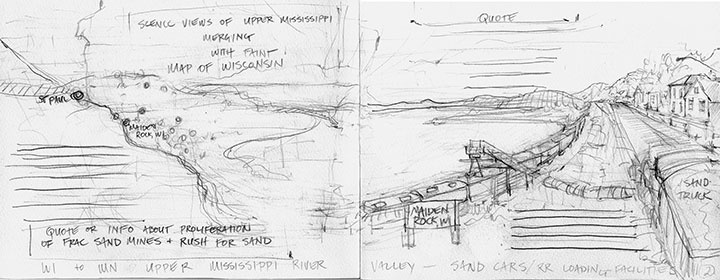 SCENIC VIEWS OF UPPER MISSISSIPPI
MERGING
WITH FAINT
MAP OF WISCONSIN
ST PAUL
MAIDEN
ROCK, WI
QUOTE OR INFO ABOUT PROLIFERATION
OF FRAC SAND MINES + RUSH FOR SAND
WI to MN UPPER MISSISSIPPI RIVER
QUOTE
MAIDEN
ROCK WI
SAND
TRUCK
VALLEY — SAND CARS/RR LOADING FACILITIES